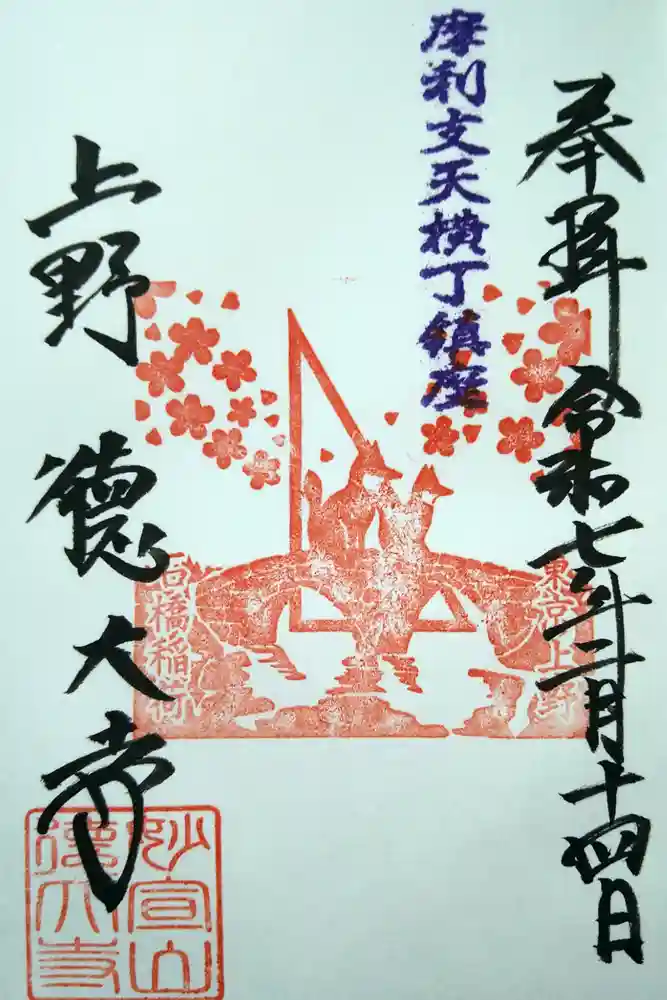 奉拝 令和七年二月十四日
摩利支天横丁鎮座
東京上野
石橋稲荷
上野 徳大寺
妙宣山
徳大寺